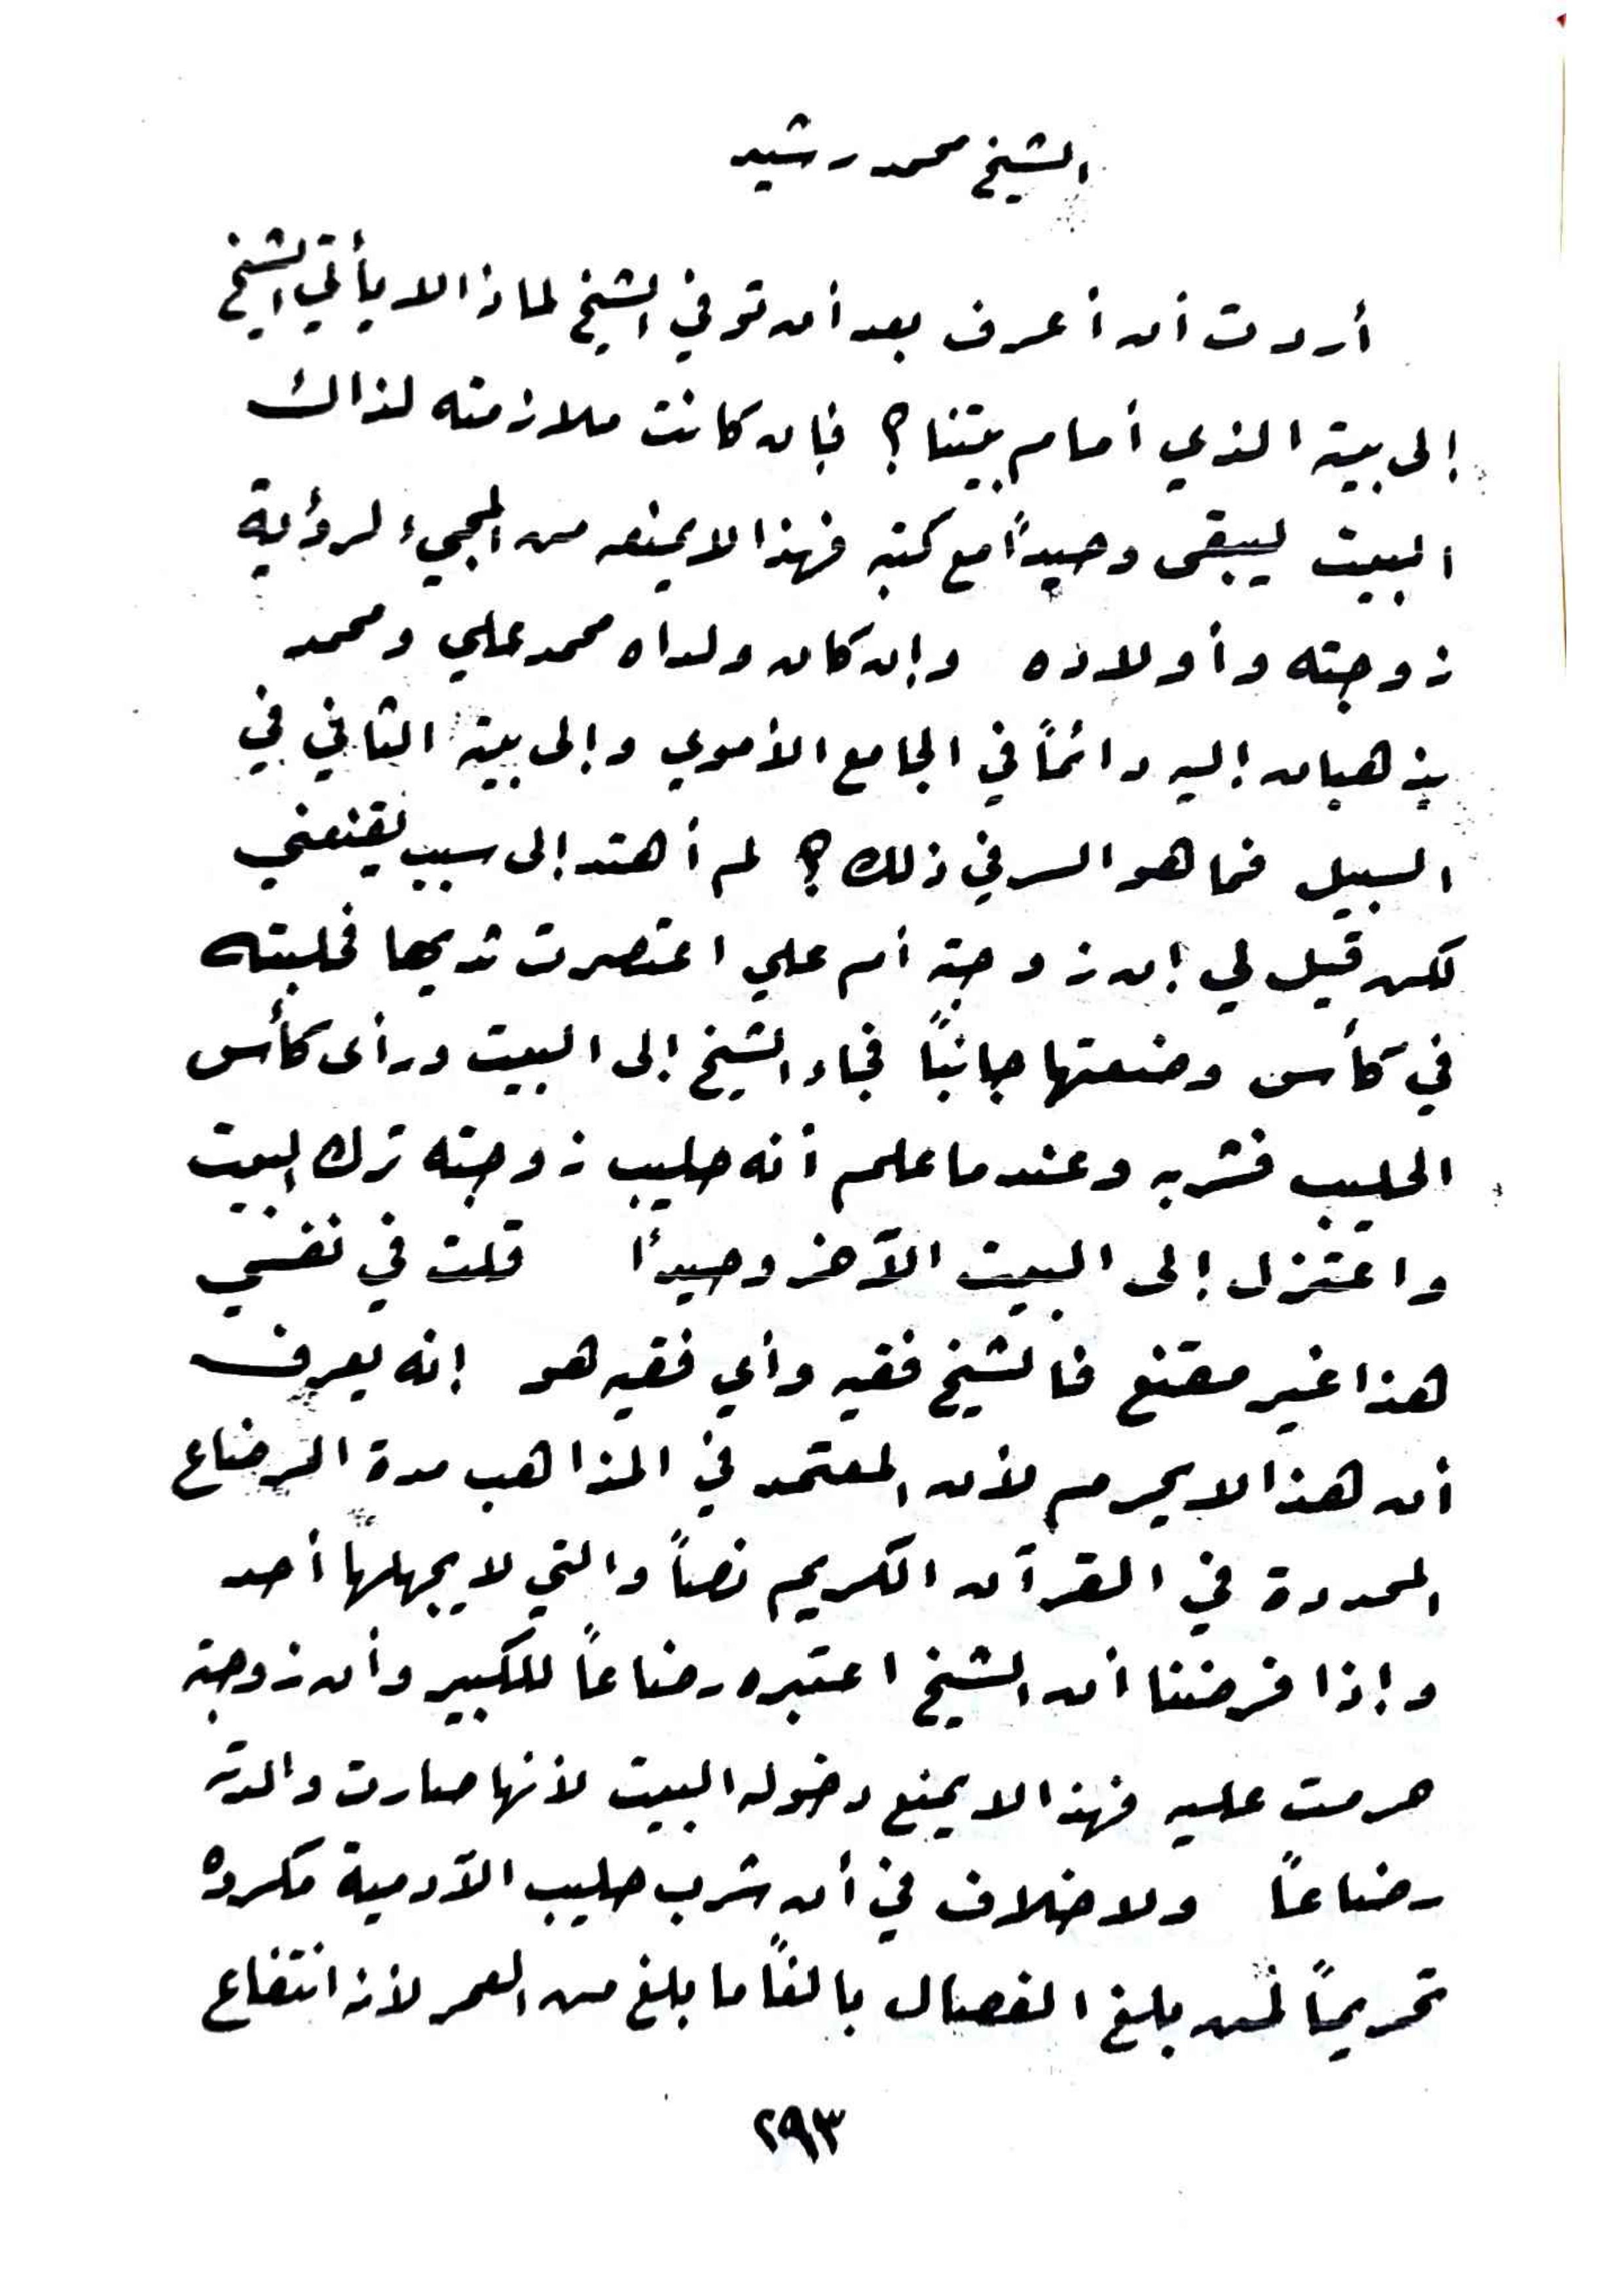 الشيخ محمد رشيد
أردت أن أعرف بعد أن توفي الشيخ لماذا لا يأتي الشيخ
إلى بيته الذي أمام بيتنا؟ فإن كانت ملازمته لذاك
البيت ليبقى وحيداً مع كتبه فهذا لا يمنعه من المجيء لرؤية
زوجته وأولاده وإن كان ولداه محمد علي ومحمد
يذهبان إليه دائماً في الجامع الأموي وإلى بيته الثاني في
السبيل فما هو السر في ذلك؟ لم أهتد إلى سبب يقنعني
لكن قيل لي إن زوجته أم علي اعتصرت ثديها فحلبته
في كأس وضعتها جانباً فجاء الشيخ إلى البيت ورأى كأس
الحليب فشربه وعندما علم أنه حليب زوجته ترك البيت
واعتزل إلى البيت الآخر وحيداً قلت في نفسي
هذا غير مقنع فالشيخ فقيه وأي فقيه هو إنه يعرف
أن هذا لا يحرم لأن المعتمد في المذاهب مدة الرضاع
المحددة في القرآن الكريم نصاً والتي لا يجهلها أحد
وإذا فرضنا أن الشيخ اعتبره رضاعاً للكبير وأن زوجته
حرمت عليه فهذا لا يمنع دخوله البيت لأنها صارت والدته
رضاعاً ولا خلاف في أن شرب حليب الآدمية مكروه
تحريماً لمن بلغ الفصال بالغاً ما بلغ من العمر لأنه انتفاع
٢٩٣